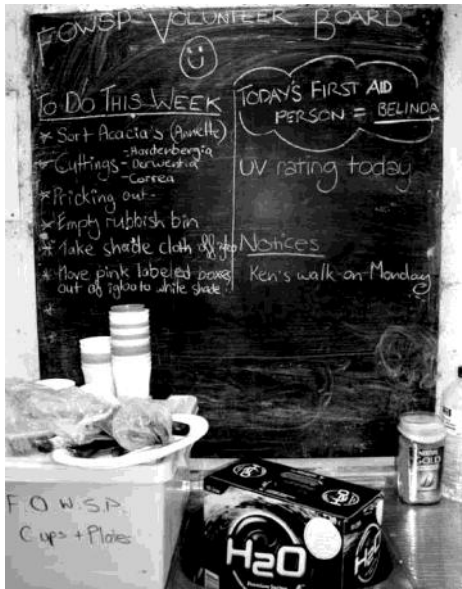 FOWSP VOLUNTEER BOARD
TO DO THIS WEEK
* Sort Acacia's (Annette)
* Cuttings - Hardenbergia
- Derwentia
- Correa
* Pricking out
* Empty rubbish bin
* Take shade cloth off
* Move pink labeled boxes
out of igloo to white shade
*
TODAY'S FIRST AID
PERSON = BELINDA
UV rating today
Notices
Ken's walk on Monday
F O W S P
Cups + Plates
H2O
H2O
GOLD